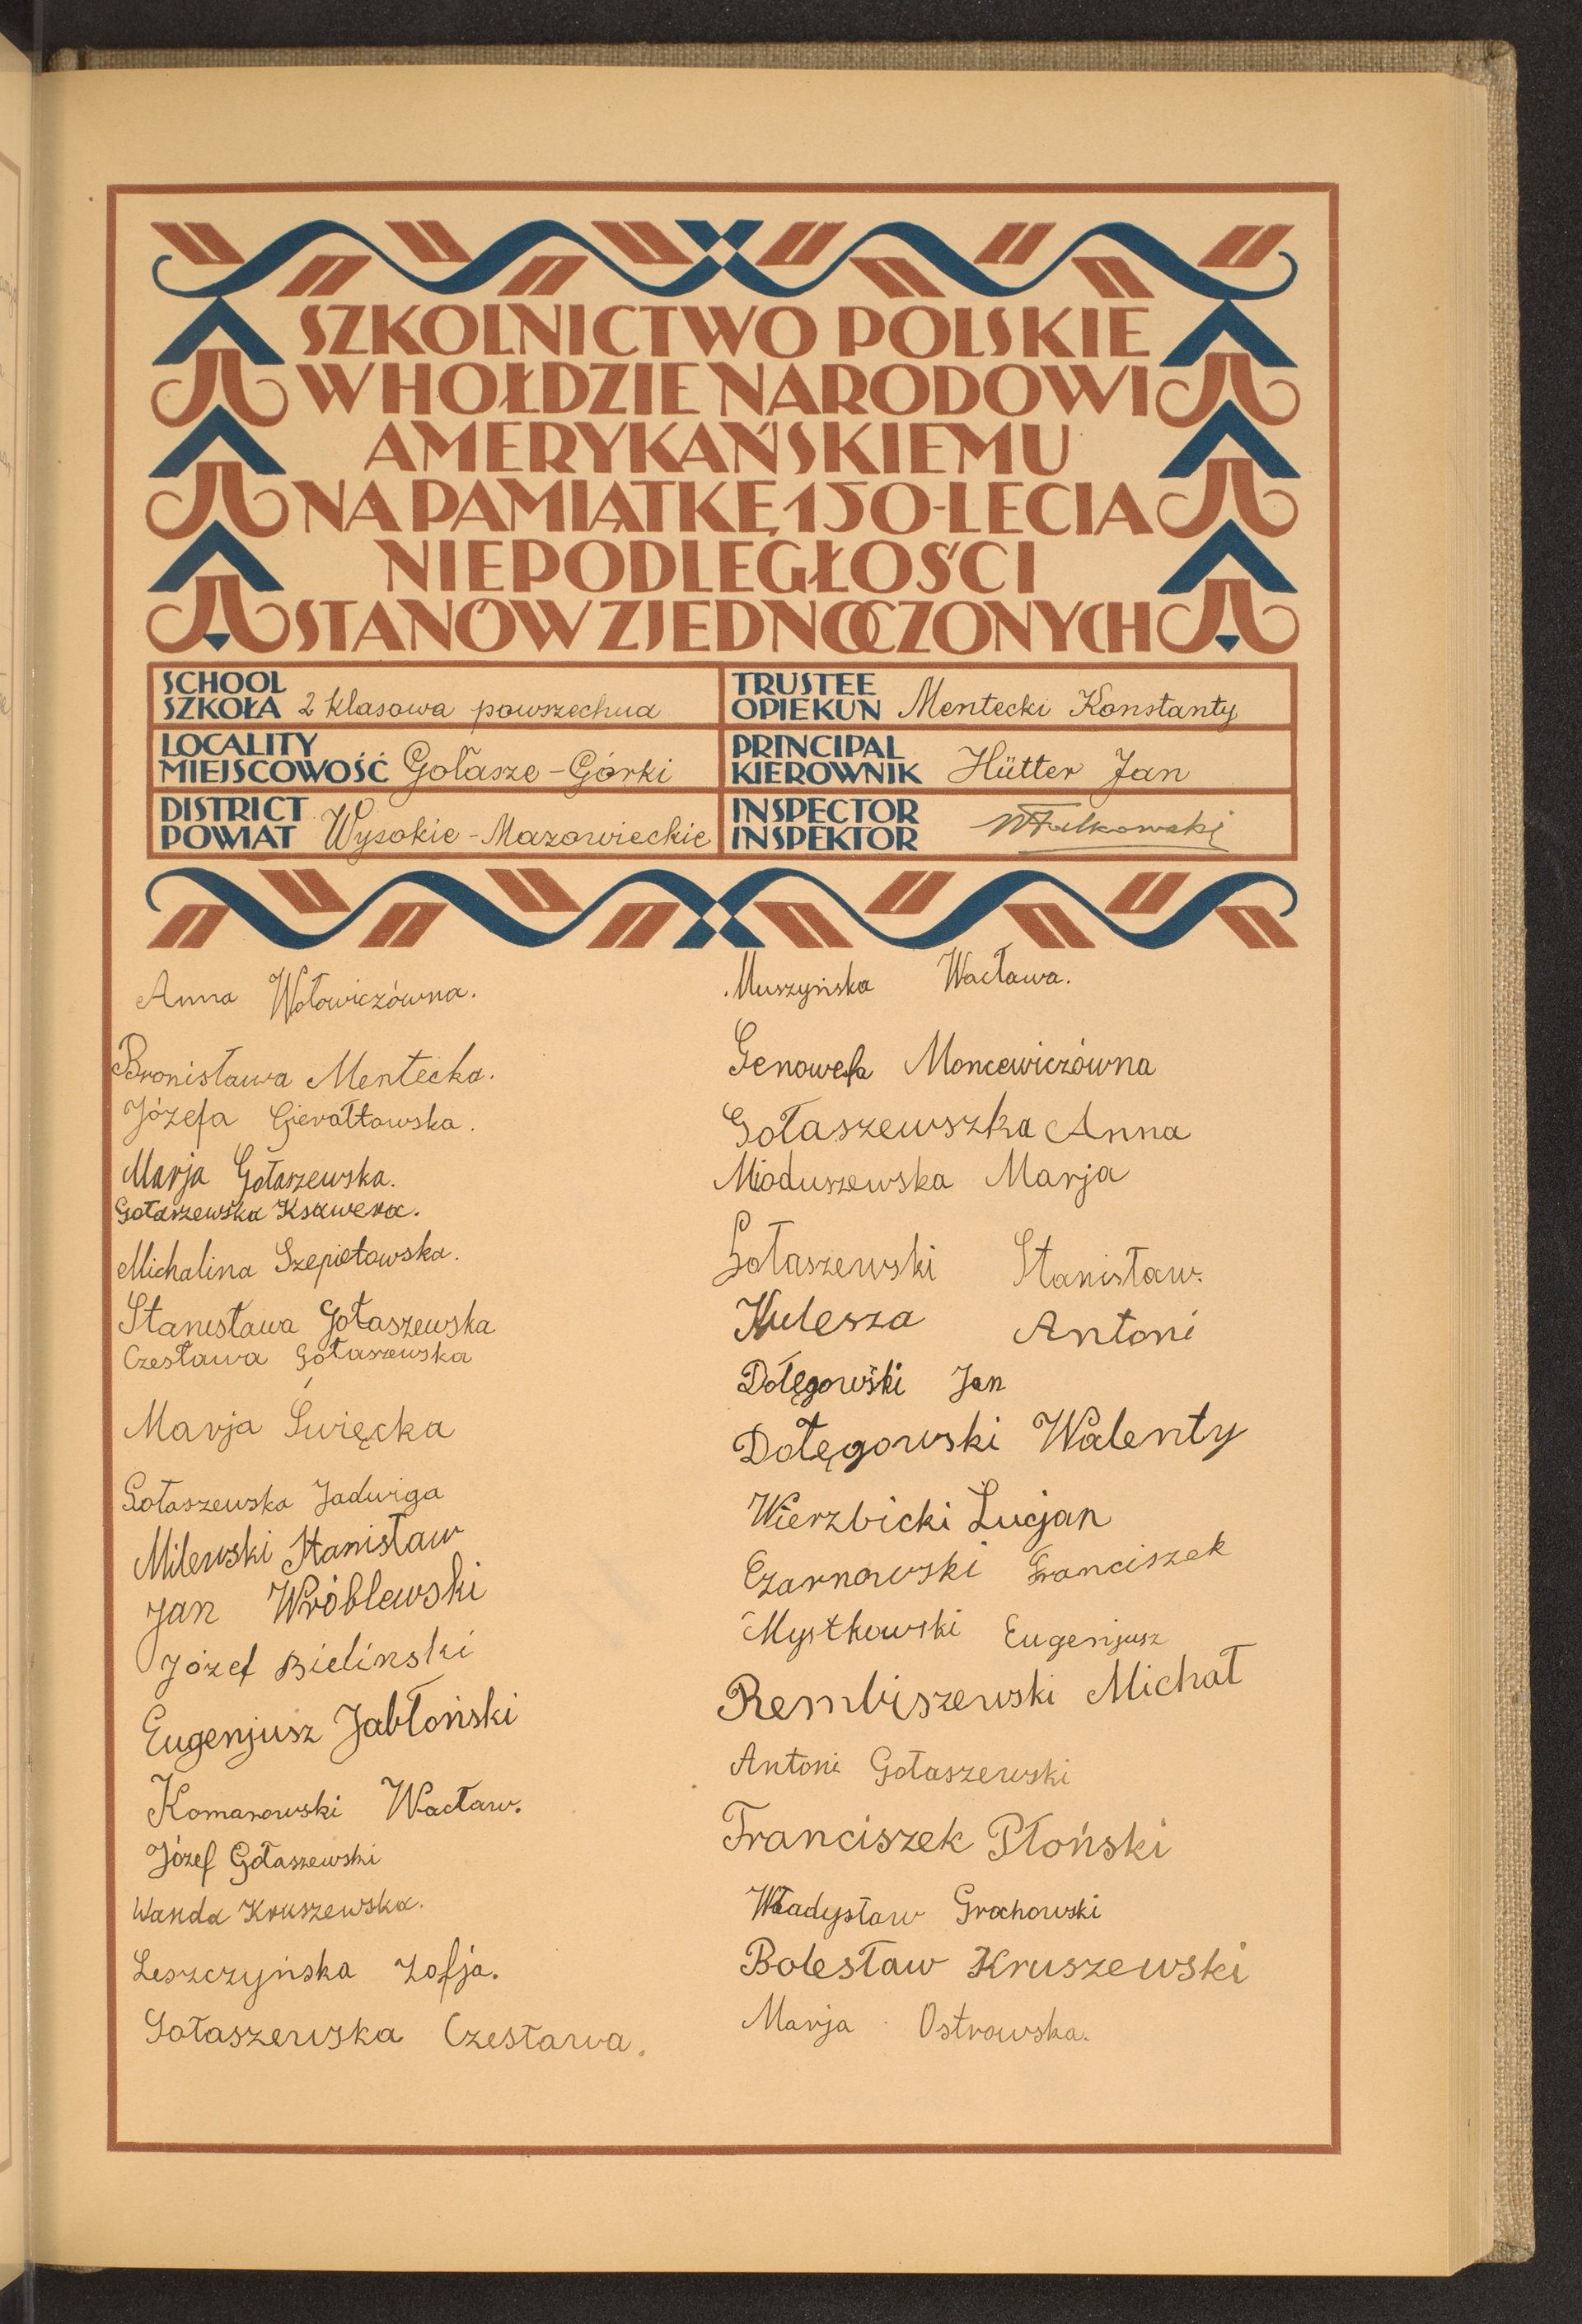 SZKOLNICTWO POLSKIE
W HOŁDZIE NARODOWI
AMERYKAŃSKIEMU
NA PAMIĄTKĘ 150-LECIA
NIEPODLEGŁOŚCI
STANÓW ZJEDNOCZONYCH
SCHOOL
SZKOŁA 2 klasowa powszechna
TRUSTEE
OPIEKUN Mentecki Konstanty
LOCALITY
MIEJSCOWOŚĆ Gołasze-Górki
PRINCIPAL
KIEROWNIK Hütter Jan
DISTRICT
POWIAT Wysokie-Mazowieckie
INSPECTOR
INSPEKTOR WFalkowski
Anna Wołowiczówna.
Bronisława Mentecka.
Józefa Gierałtowska.
Marja Gołaszewska.
Gołaszewska Ksawera.
Michalina Szepietowska.
Stanisława Gołaszewska
Czesława Gołaszewska
Marja Święcka
Gołaszewska Jadwiga
Milewski Stanisław
Jan Wróblewski
Józef Bielinski
Eugenjusz Jabłoński
Komarowski Wacław.
Józef Gołaszewski
Wanda Kruszewska.
Leszczyńska Zofja.
Gołaszewska Czesława.
Muszyńska Wacława.
Genowefa Moncewiczówna
Gołaszewszka Anna
Mioduszewska Marja
Gołaszewski Stanisław.
Kulesza Antoni
Dołęgowski Jan
Dołęgowski Walenty
Wierzbicki Lucjan
Czarnowski Franciszek
Mystkowski Eugenjusz
Rembiszewski Michał
Antoni Gołaszewski
Franciszek Płoński
Władysław Grochowski
Bolesław Kruszewski
Marja Ostrowska.